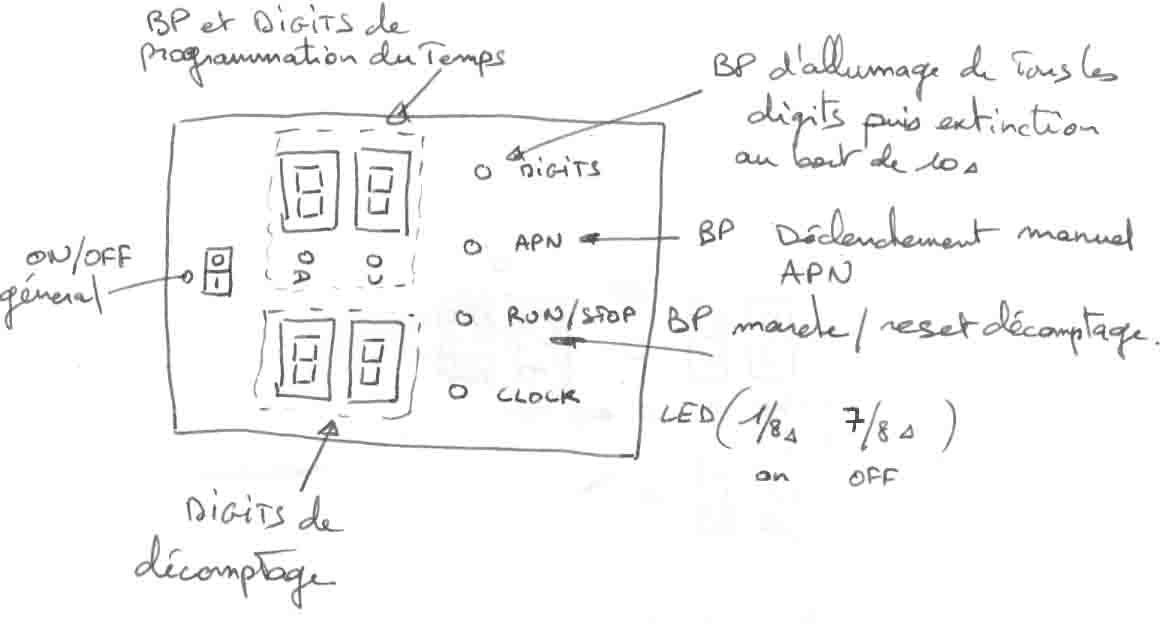 BP et DIGITS de
programmation du Temps
BP d'allumage de Tous les
digits puis extinction
au bout de 10s
DIGITS
ON/OFF
général
O
I
D
U
APN
BP Déclenchement manuel
APN
RUN/STOP
BP marche/reset décomptage.
CLOCK
LED (1/8s 7/8s)
on OFF
DIGITS de
décomptage